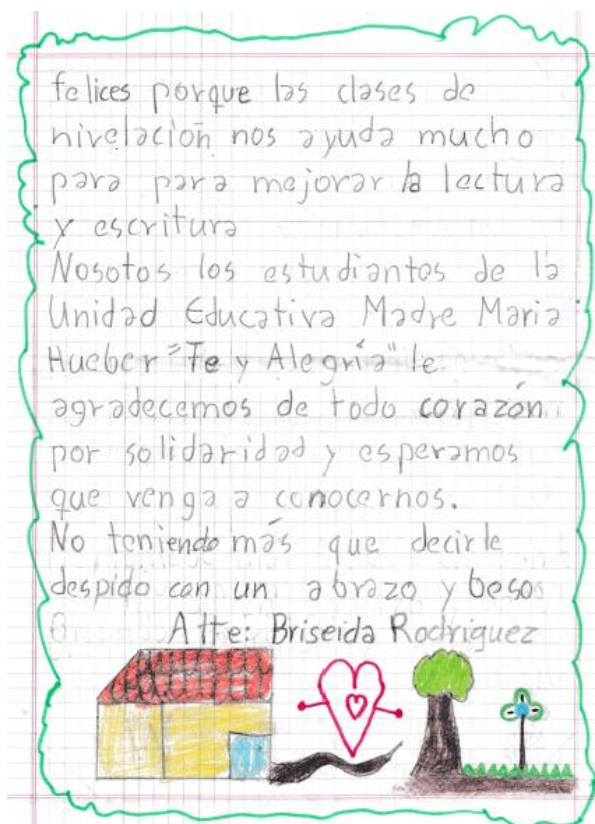 felices porque las clases de
nivelación nos ayuda mucho
para para mejorar la lectura
y escritura
Nosotos los estudiantes de la
Unidad Educativa Madre Maria
Hueber "Fe y Alegría" le
agradecemos de todo corazón
por solidaridad y esperamos
que venga a conocernos.
No teniendo más que decirle
despido con un abrazo y beso
Atte: Briseida Rodriguez